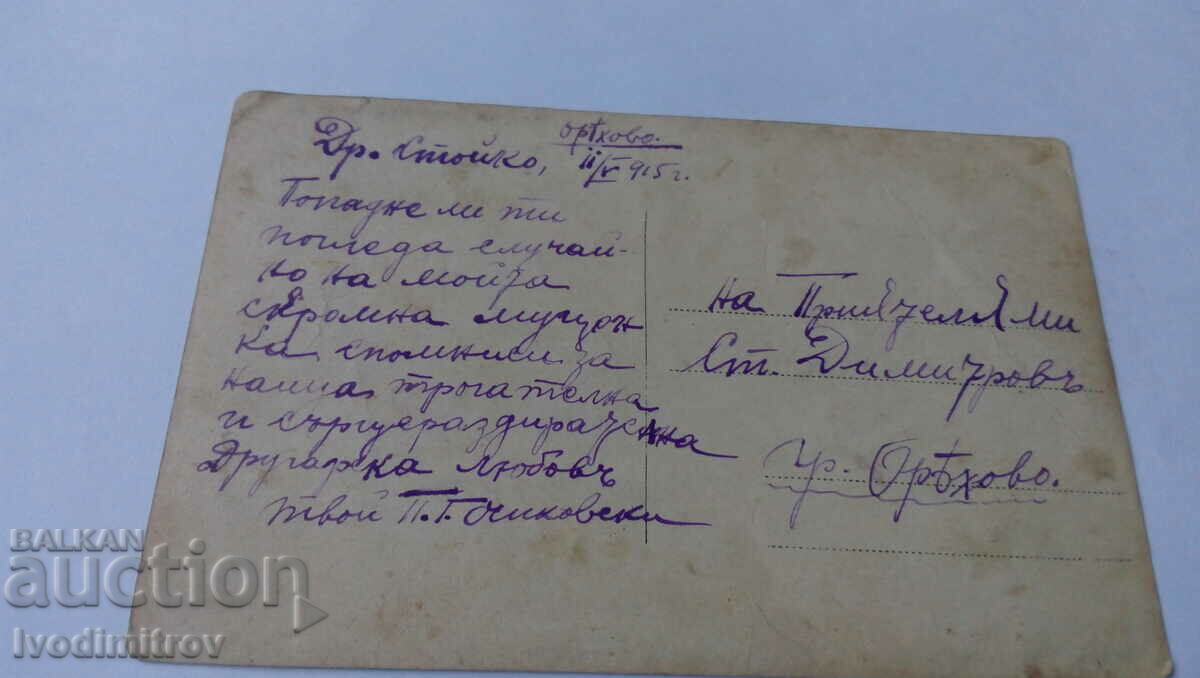 Орѣхово.
Др. Стойко, 11/V 915 г.
Попадне ли ти
погледа случай-
но на мойта
скромна муцун
ка спомниси за
наша трогателна
и сърцераздирателна
Другарска любовъ
твой П. Г. Очиковски
на Приятелями
Ст. Димитровъ
гр. Орѣхово.
BALKAN
auction
Ivodimitrov